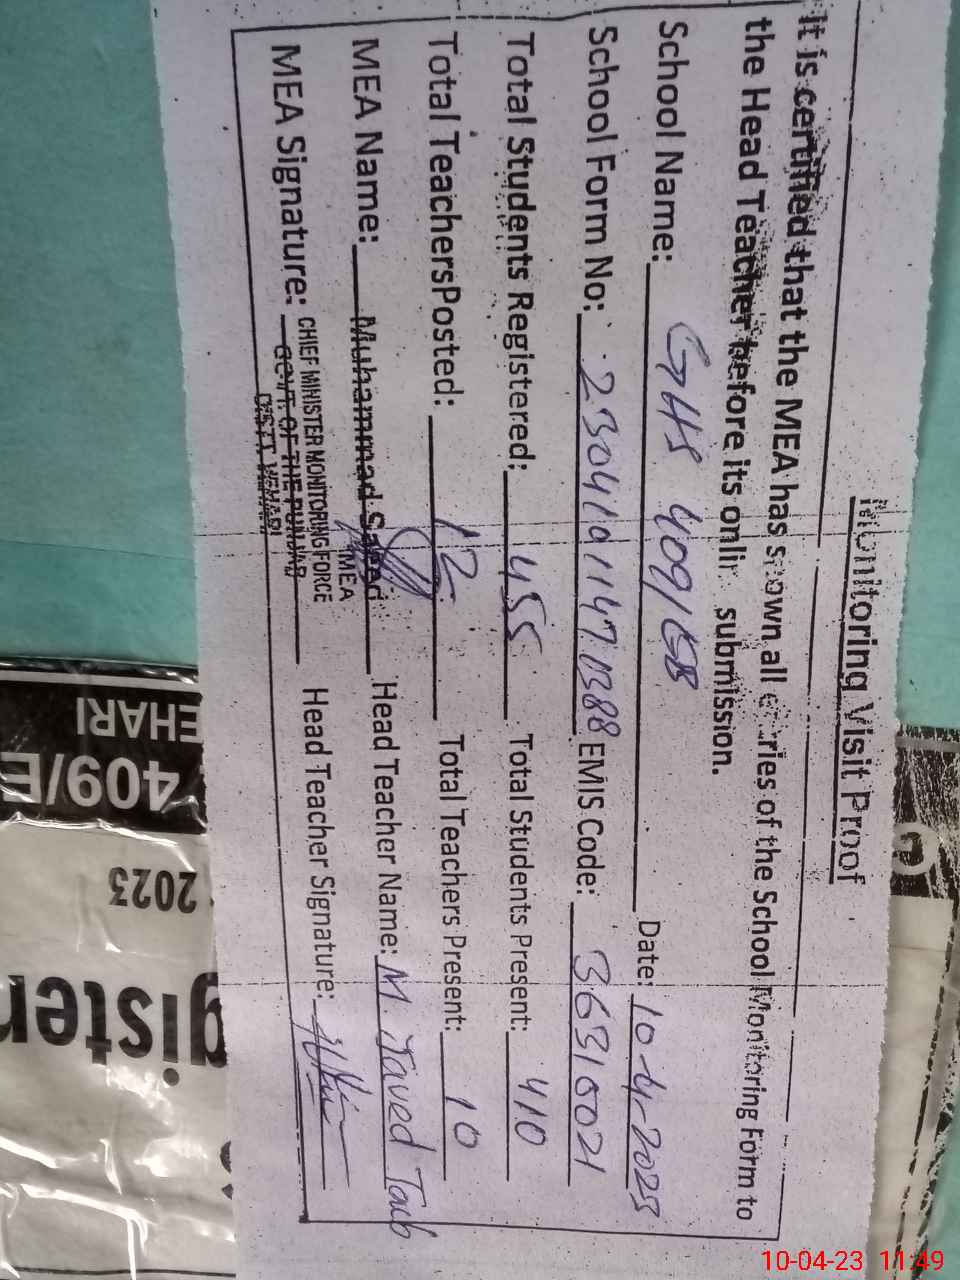 Monitoring Visit Proof
It is certified that the MEA has shown all entries of the School Monitoring Form to
the Head Teacher before its online submission.
School Name: GHS 409/EB Date: 10-4-2023
School Form No: 23041011470388 EMIS Code: 36310021
Total Students Registered: 455 Total Students Present: 410
Total TeachersPosted: 12 Total Teachers Present: 10
MEA Name: Muhammad Saeed Head Teacher Name: M. Javed
MEA
MEA Signature: Head Teacher Signature:
CHIEF MINISTER MONITORING FORCE
GOVT. OF THE PUNJAB
DISTT. VEHARI
EHARI
409/E
2023
gister
G
10-04-23 11:49